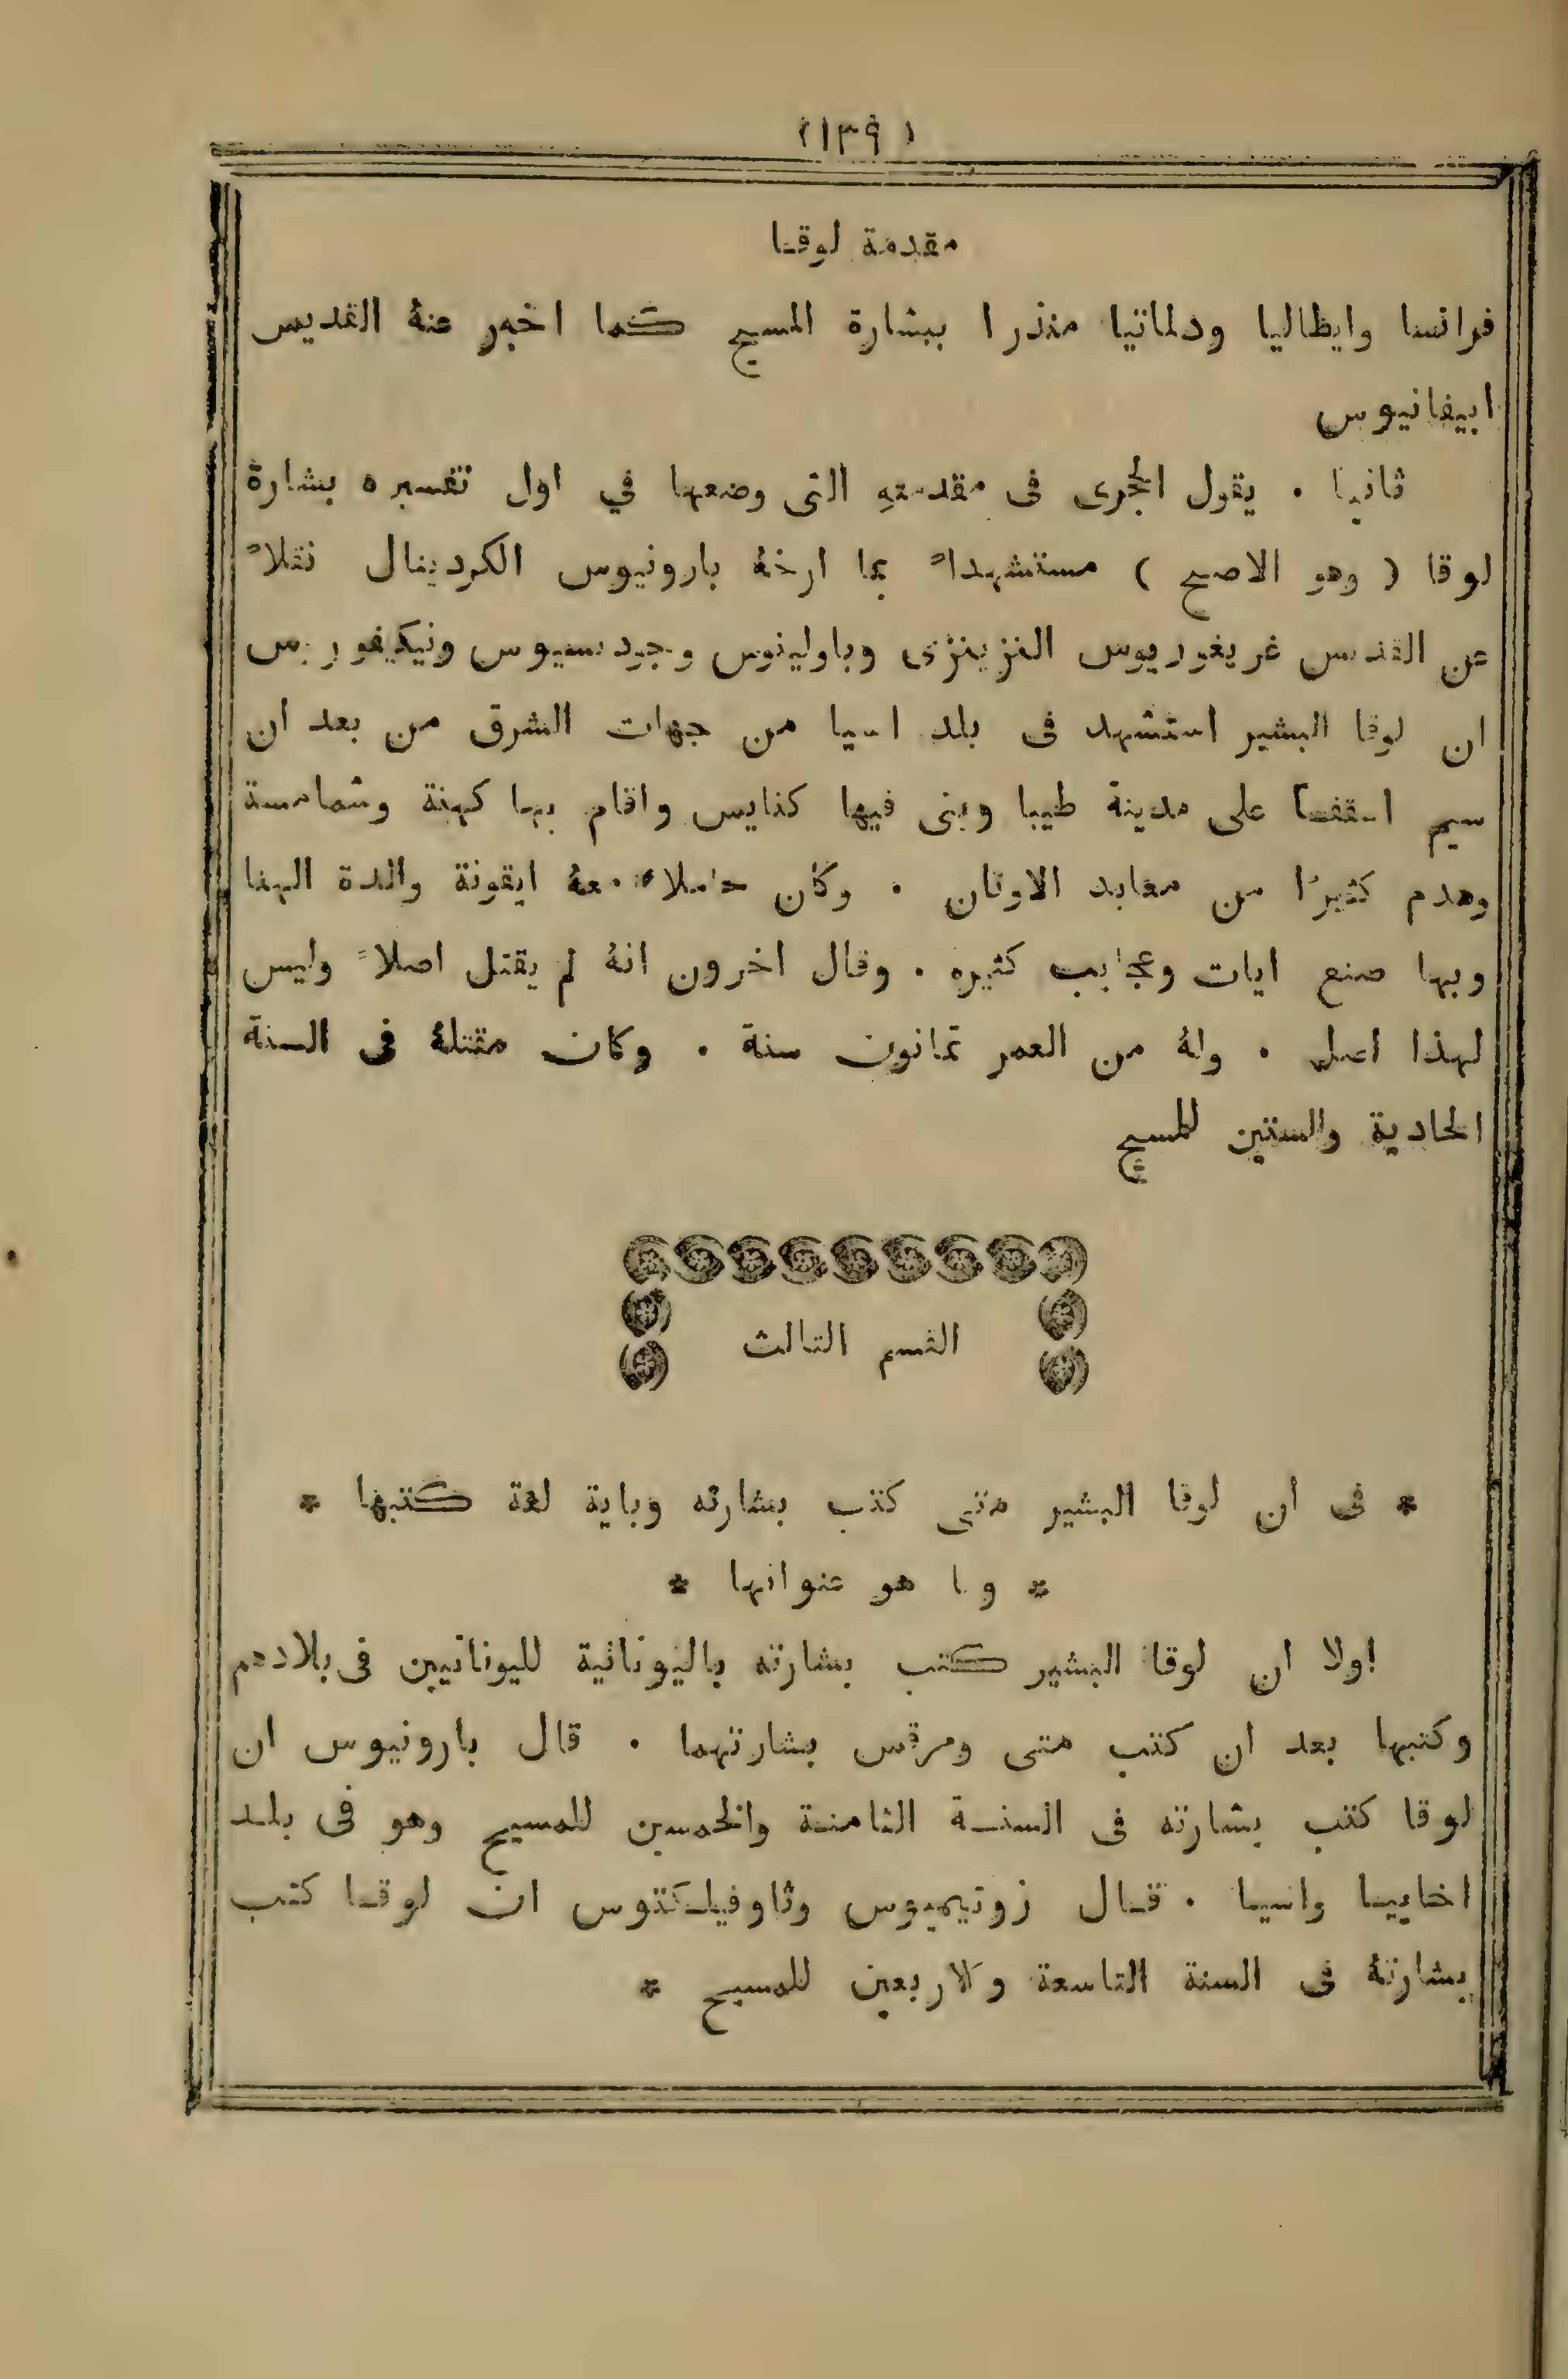 (١٣٩)
مقدمة لوقا
فرانسا وايطاليا ودلماتيا منذرا ببشارة المسيح كما اخبر عنهُ القديس
ابيفانيوس
ثانيا . يقول الحجرى فى مقدمتهِ التى وضعها في اول تفسيره بشارة
لوقا ( وهو الاصح ) مستشهداً بما ارخهُ بارونيوس الكردينال نقلاً
عن القديس غريغوريوس النزينزى وباولينوس وجوديسيوس ونيكيفورس
ان لوقا البشير استشهد فى بلد اسيا من جهات الشرق من بعد ان
سيم اسقفا على مدينة طيبا وبنى فيها كنايس واقام بها كهنة وشمامسة
وهدم كثيرًا من معابد الاوثان . وكان حاملاً معهُ ايقونة والدة الهنا
وبها صنع ايات وعجايب كثيره . وقال اخرون انهُ لم يقتل اصلاً وليس
لهذا اصل . ولهُ من العمر ثمانون سنة . وكان مقتلهُ فى السنة
الحادية والستين للمسيح
القسم الثالث
* فى ان لوقا البشير متى كتب بشارته وباية لغة كتبها *
* وما هو عنوانها *
اولا ان لوقا البشير كتب بشارته باليونانية لليونانيين فى بلادهم
وكتبها بعد ان كتب متى ومرقس بشارتهما . قال بارونيوس ان
لوقا كتب بشارته فى السنة الثامنة والخمسين للمسيح وهو فى بلد
اخاييا واسيا . قال زوتيميوس وثاوفيلكتوس ان لوقا كتب
بشارتهُ فى السنة التاسعة ولاربعين للمسيح *